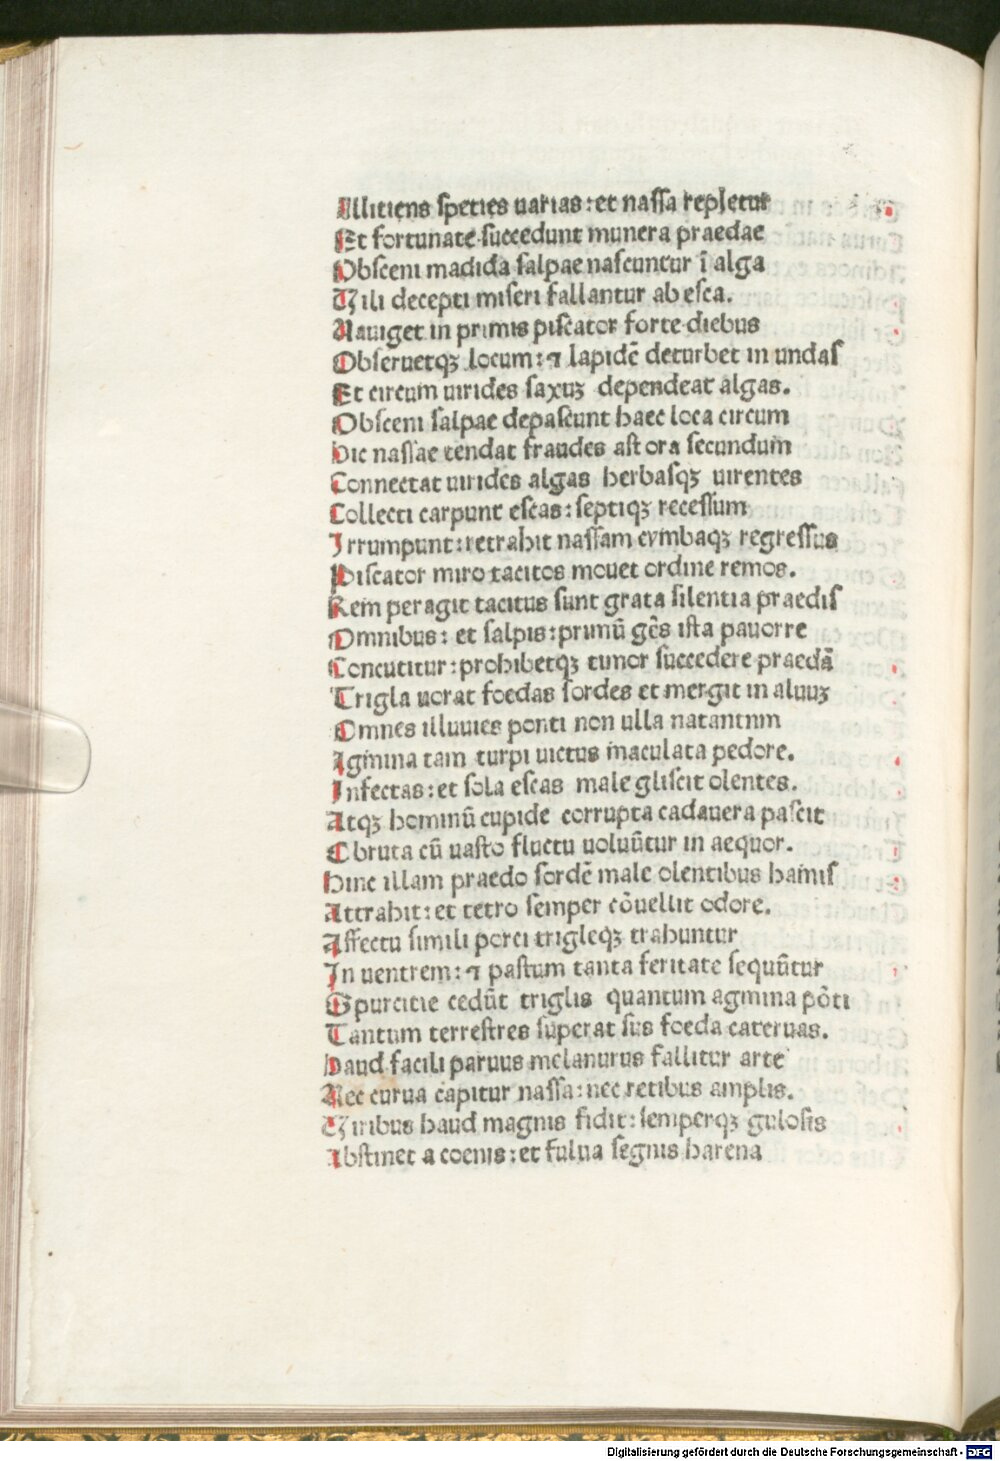 Allitiens species uarias: et nassa repletur
Et fortunate succedunt munera praedae
Obsceni madida salpae nascuntur ī alga
Vili decepti miseri fallantur ab esca.
Nauiget in primis piscator forte diebus
Obseruetqꝫ locum: ⁊ lapidē deturbet in undas
Et circum uirides saxuꝫ dependeat algas.
Obsceni salpae depascunt haec loca circum
Hic nassae tendat fraudes ast ora secundum
Connectat uirides algas herbasqꝫ uirentes
Collecti carpunt escas: septiqꝫ recessum
Irrumpunt: retrahit nassam cymbaqꝫ regressus
Piscator miro tacitos mouet ordine remos.
Rem peragit tacitus sunt grata silentia praedis
Omnibus: et salpis: primū gēs ista pauorre
Concutitur: prohibetqꝫ timor succedere praedā
Trigla uorat foedas sordes et mergit in aluuꝫ
Omnes illuuies ponti non ulla natantnm
Agmina tam turpi uictus maculata pedore.
Infectas: et sola escas male gliscit olentes.
Atqꝫ hominū cupide corrupta cadauera pascit
Obruta cū uasto fluctu uoluūtur in aequor.
Hinc illam praedo sordē male olentibus hamis
Attrahit: et tetro semper cōuellit odore.
Affectu simili porci trigleqꝫ trahuntur
In uentrem: ⁊ pastum tanta feritate sequūtur
Spurcitie cedūt triglis quantum agmina pōti
Tantum terrestres superat sus foeda cateruas.
Haud facili paruus melanurus fallitur arte
Nec curua capitur nassa: nec retibus amplis.
Viribus haud magnis fidit: semperqꝫ gulosis
Abstinet a coenis: et fulua segnis harena
Digitalisierung gefördert durch die Deutsche Forschungsgemeinschaft - DFG